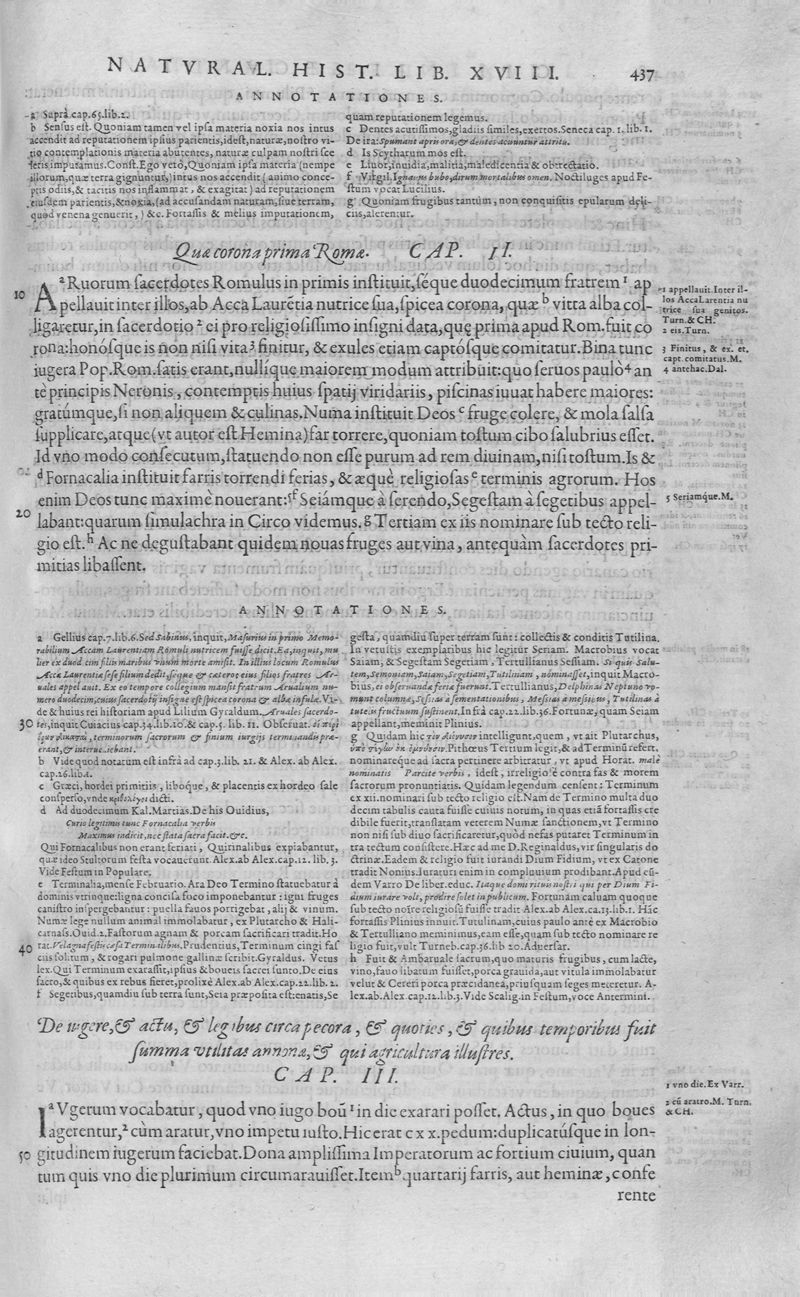 NATVRAL. HIST. LIB. XVIII. 437
ANNOTATIONES.
a Suprà cap.63.lib.2.
b Sensus est. Quoniam tamen vel ipsa materia noxia nos intus
accendit ad reputationem ipsius parientis, idest, naturæ, nostro vi-
tio contemplationis materia abutentes, naturæ culpam nostri sce
leris imputamus. Const. Ego verò, Quoniam ipsa materia (nempe
illorum, quæ terra gignuntur) intus nos accendit (animo conce-
ptis odiis, & tacitis nos inflammat, & exagitat) ad reputationem
eiusdem parientis, & noxia, (ad accusandam naturam, siue terram,
quod venena genuerit,) &c. Fortassis & melius imputationem,
quam reputationem legemus.
c Dentes acutissimos, gladiis similes, exertos. Seneca cap. 1. lib. 1.
De ira: Spumant apris ora, & dentes acuuntur attritu.
d Is Scytharum mos est.
e Liuor, inuidia, malitia, maledicentia & obtrectatio.
f Virgil. Ignauus bubo, dirum mortalibus omen. Noctiluges apud Fe-
stum vocat Lucilius.
g Quoniam frugibus tantùm, non conquisitis epularum deli-
ciis, alerentur.
Quæ corona prima Romæ. CAP. II.
10 AᵃRuorum sacerdotes Romulus in primis instituit, séque duodecimum fratrem¹ ap
pellauit inter illos, ab Acca Laurētia nutrice sua, spicea corona, quæ ᵇ vitta alba col-
ligaretur, in sacerdotio² ei pro religiosissimo insigni data, quę prima apud Rom. fuit co
rona: honósque is non nisi vita³ finitur, & exules etiam captósque comitatur. Bina tunc
iugera Pop. Rom. satis erant, nullique maiorem modum attribuit: quo seruos paulò⁴ an
tè principis Neronis, contemptis huius spatij viridariis, piscinas iuuat habere maiores:
gratúmque, si non aliquem & culinas. Numa instituit Deos ᶜ fruge colere, & mola salsa
supplicare, atque (vt autor est Hemina) far torrere, quoniam tostum cibo salubrius esset.
Id vno modo consecutum, statuendo non esse purum ad rem diuinam, nisi tostum. Is &
ᵈ Fornacalia instituit farris torrendi ferias, & æquè religiosas ᵉ terminis agrorum. Hos
enim Deos tunc maximè nouerant: ⁵ᶠ Seiámque à serendo, Segestam à segetibus appel-
20 labant: quarum simulachra in Circo videmus. ᵍ Tertiam ex iis nominare sub tecto reli-
gio est. ʰ Ac ne degustabant quidem nouas fruges aut vina, antequàm sacerdotes pri-
mitias libassent.
1 appellauit. Inter il-
los Acca Larentia nu
trice sua genitos.
Turn. & CH.
2 eis. Turn.
3 Finitur, & ex. et.
capt. comitatus. M.
4 antehac. Dal.
5 Seriamque. M.
ANNOTATIONES.
a Gellius cap.7.lib.6. Sed Sabinus, inquit, Masurius in primo Memo-
rabilium Accam Laurentiam Romuli nutricem fuisse dicit. Ea, inquit, mu
lier ex duodecim filiis maribus vnum morte amisit. In illius locum Romulus
Accæ Laurentiæ sese filium dedit, séque & cæteros eius filios fratres Ar-
uales appellauit. Ex eo tempore collegium mansit fratrum Arualium nu-
mero duodecim, cuius sacerdotij insigne est spicea corona & albæ infulæ. Vi-
de & huius rei historiam apud Lilium Gyraldum. Aruales sacerdo-
30 tes, inquit Cuiacius cap.34.lib.10. & cap.5. lib. 11. Obseruat.
terminorum sacrorum & finium iurgijs terminandis præ-
erant, & interueniebant.
b Vide quod notatum est infrà ad cap.3.lib. 21. & Alex. ab Alex.
cap.26.lib.4.
c Græci, hordei primitiis, liboque, & placentis ex hordeo sale
consperso, vnde κριθολόγοι dicti.
d Ad duodecimum Kal. Martias. De his Ouidius,
Curio legitimis tunc Fornacalia verbis
Maximus indicit, nec stata sacra facit. &c.
Qui Fornacalibus non erant feriati, Quirinalibus expiabantur,
quæ ideo Stultorum festa vocauerunt. Alex. ab Alex. cap.12. lib. 3.
Vide Festum in Populare.
e Terminalia, mense Februario. Ara Deo Termino statuebatur à
dominis vtrinque: ligna concisa foco imponebantur: igni fruges
canistro inspergebantur: puella fauos porrigebat, alij & vinum.
Numæ lege nullum animal immolabatur, ex Plutarcho & Hali-
carnass. Ouid. 2. Fastorum agnam & porcam sacrificari tradit. Ho
40 rat. Vel agna festis cæsa Terminalibus. Prudentius, Terminum cingi fas
ciis solitum, & rogari pulmone gallinæ scribit. Gyraldus. Vetus
lex. Qui Terminum exarassit, ipsius & boueis sacrei sunto. De eius
sacro, & quibus ex rebus fieret, prolixè Alex. ab Alex. cap.22. lib. 2.
f Segetibus, quamdiu sub terra sunt, Seia præposita est: enatis, Se
gesta, quamdiu super terram sunt: collectis & conditis Tutilina.
In vetustis exemplaribus hic legitur Seriam. Macrobius vocat
Saiam, & Segestam Segetiam, Tertullianus Sessiam. Si quis Salu-
tem, Semoniam, Saiam, Segetiam, Tutilinam, nominasset, inquit Macro-
bius, ei obseruandæ feriæ fuerunt. Tertullianus, Delphinas Neptuno vo-
munt columnæ, Sessias à sementationibus, Messias à messibus, Tutilinas à
tuteis fructuum sustinent. Infrà cap.22.lib.36. Fortunæ, quam Seiam
appellant, meminit Plinius.
g Quidam hic intelligunt, quem, vt ait Plutarchus,
Pithœus Tertium legit, & ad Terminū refert.
nominareque ad sacra pertinere arbitratur, vt apud Horat. malè
nominatis Parcite verbis, idest, irreligiosè contra fas & morem
sacrorum pronuntiatis. Quidam legendum censent: Terminum
ex xii. nominari sub tecto religio est. Nam de Termino multa duo
decim tabulis cauta fuisse cuiuis notum, in quas etiā fortassis cre
dibile fuerit, translatam veterem Numæ sanctionem, vt Termino
non nisi sub diuo sacrificaretur, quòd nefas putaret Terminum in
tra tectum consistere. Hæc ad me D. Reginaldus, vir singularis do
ctrinæ. Eadem & religio fuit iurandi Dium Fidium, vt ex Catone
tradit Nonius. Iuraturi enim in compluuium prodibant. Apud eū-
dem Varro De liber. educ. Itaque domi rituis nostri qui per Dium Fi-
dium iurare volt, prodire solet in publicum. Fortunam caluam quoque
sub tecto nosse religiosū fuisse tradit Alex. ab Alex. ca.13.lib.1. Hāc
fortassis Plinius innuit. Tutulinam, cuius paulo antè ex Macrobio
& Tertulliano meminimus, eam esse, quam sub tecto nominare re
ligio fuit, vult Turneb. cap.36. lib 20. Aduersar.
h Fuit & Ambaruale sacrum, quo maturis frugibus, cum lacte,
vino, fauo libatum fuisset, porca grauida, aut vitula immolabatur
velut & Cereri porca præcidanea, priusquam seges meteretur. A-
lex. ab Alex. cap.12.lib.3. Vide Scalig. in Festum, voce Antermini.
De iugere, & actu, & legibus circa pecora, & quoties, & quibus temporibus fuit
summa vtilitas annonæ, & qui agricultura illustres.
CAP. III.
IᵃVgerum vocabatur, quod vno iugo boū¹ in die exarari posset. Actus, in quo boues
agerentur,² cùm aratur, vno impetu iusto. Hic erat cxx. pedum: duplicatúsque in lon-
50 gitudinem iugerum faciebat. Dona amplissima Imperatorum ac fortium ciuium, quan
tum quis vno die plurimum circumarauisset. Item ᵇ quartarij farris, aut heminæ, confe
rente
1 vno die. Ex Varr.
2 cū aratro. M. Turn.
& CH.